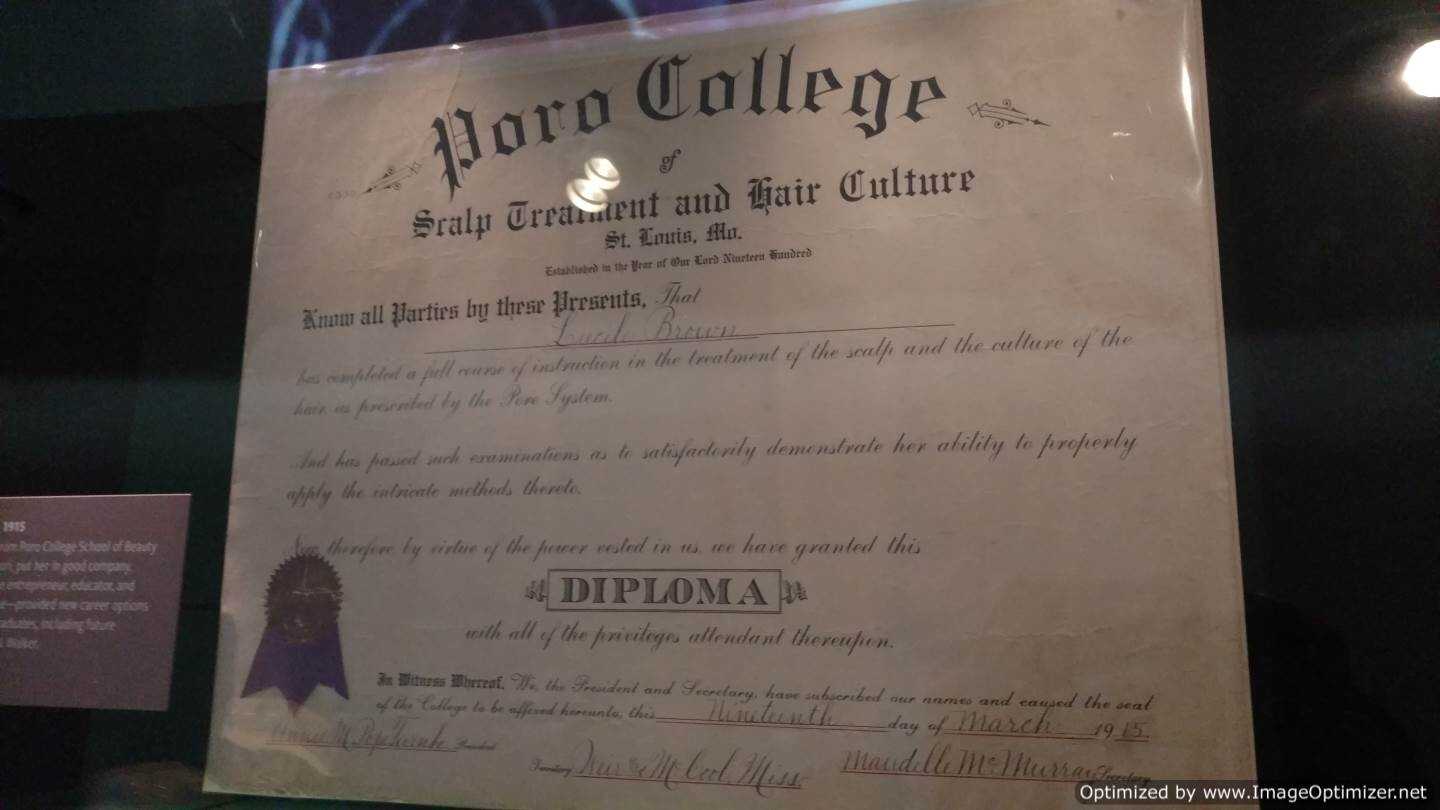 Poro College
of
Scalp Treatment and Hair Culture
St. Louis, Mo.
Established in the Year of Our Lord Nineteen Hundred
Know all Parties by these Presents, That
Lucile Brown
has completed a full course of instruction in the treatment of the scalp and the culture of the
hair, as prescribed by the Poro System.
And has passed such examinations as to satisfactorily demonstrate her ability to properly
apply the intricate methods thereto.
Now, therefore by virtue of the power vested in us, we have granted this
DIPLOMA
with all of the privileges attendant thereupon.
In Witness Whereof, We, the President and Secretary, have subscribed our names and caused the seal
of the College to be affixed hereunto, this Nineteenth day of March 1915.
Annie M. Pope Turnbo President
Maudelle McMurray Secretary
McCool, Miss.
1915
Poro College School of Beauty
put her in good company.
entrepreneur, educator, and
provided new career options
graduates, including future
Walker.
Optimized by www.ImageOptimizer.net